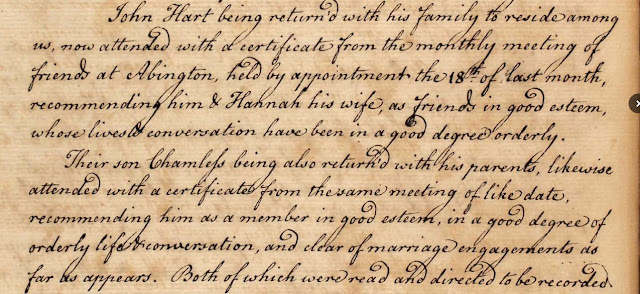 John Hart being return'd with his family to reside among
us, now attended with a certificate from the monthly meeting of
friends at Abington, held by appointment the 18th. of. last month,
recommending him & Hannah his wife, as friends in good esteem,
whose lives & conversation have been in a good degree orderly.
Their son Chamless being also return'd with his parents, likewise
attended with a certificate from the same meeting of like date,
recommending him as a member in good esteem, in a good degree of
orderly life & conversation, and clear of marriage engagements as
far as appears. Both of which were read and directed to be recorded.